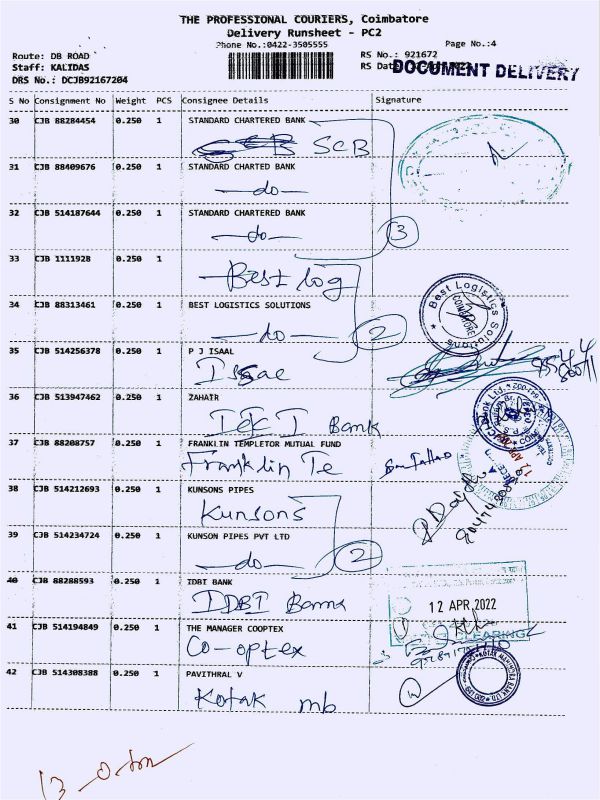 THE PROFESSIONAL COURIERS, Coimbatore
Delivery Runsheet - PC2
Phone No.:0422-3505555
Page No.:4
Route: DB ROAD
RS No.: 921672
Staff: KALIDAS
RS Date
DOCUMENT DELIVERY
DRS No.: DCJB92167204
S No Consignment No Weight PCS Consignee Details Signature
30 CJB 88284454 0.250 1 STANDARD CHARTERED BANK
SCB
31 CJB 88409676 0.250 1 STANDARD CHARTED BANK
—do—
32 CJB 514187644 0.250 1 STANDARD CHARTERED BANK
—do—
3
33 CJB 1111928 0.250 1
Best log
34 CJB 88313461 0.250 1 BEST LOGISTICS SOLUTIONS
—do—
2
Best Logistics Solutions
COIMBATORE
35 CJB 514256378 0.250 1 P J ISAAL
Issac
36 CJB 513947462 0.250 1 ZAHAIR
Bank
37 CJB 88208757 0.250 1 FRANKLIN TEMPLETOR MUTUAL FUND
Franklin Te
38 CJB 514212693 0.250 1 KUNSONS PIPES
Kunsons
39 CJB 514234724 0.250 1 KUNSON PIPES PVT LTD
—do—
2
40 CJB 88288593 0.250 1 IDBI BANK
IDBI
12 APR 2022
CLEARING
41 CJB 514194849 0.250 1 THE MANAGER COOPTEX
Co-optex
42 CJB 514308388 0.250 1 PAVITHRAL V
Kotak mb
KOTAK MAHINDRA BANK LTD
13